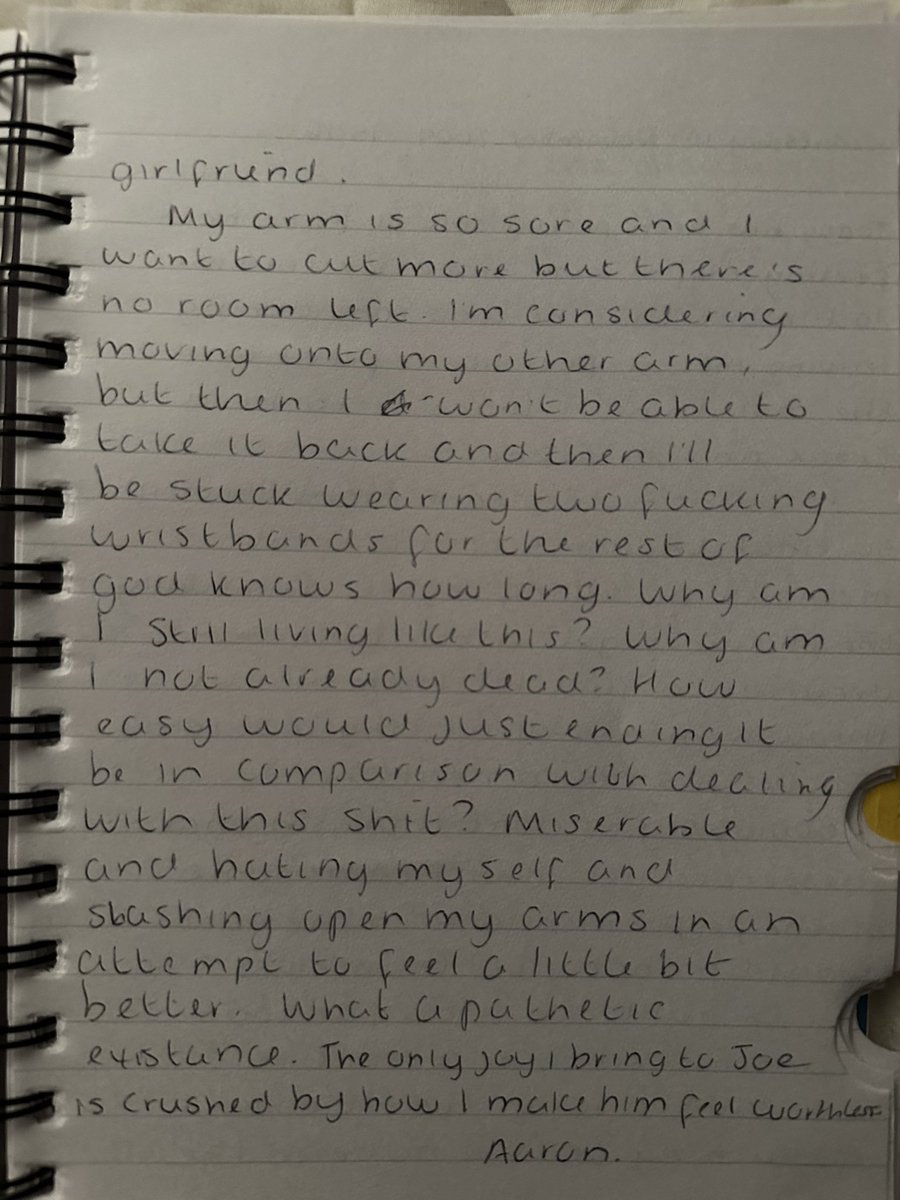 girlfriend.
My arm is so sore and I
want to cut more but there's
no room left. I'm considering
moving onto my other arm,
but then I won't be able to
take it back and then I'll
be stuck wearing two fucking
wristbands for the rest of
god knows how long. Why am
I still living like this? Why am
I not already dead? How
easy would just ending it
be in comparison with dealing
with this shit? Miserable
and hating myself and
slashing open my arms in an
attempt to feel a little bit
better. What a pathetic
existance. The only joy I bring to Joe
is crushed by how I make him feel worthless
Aaron.